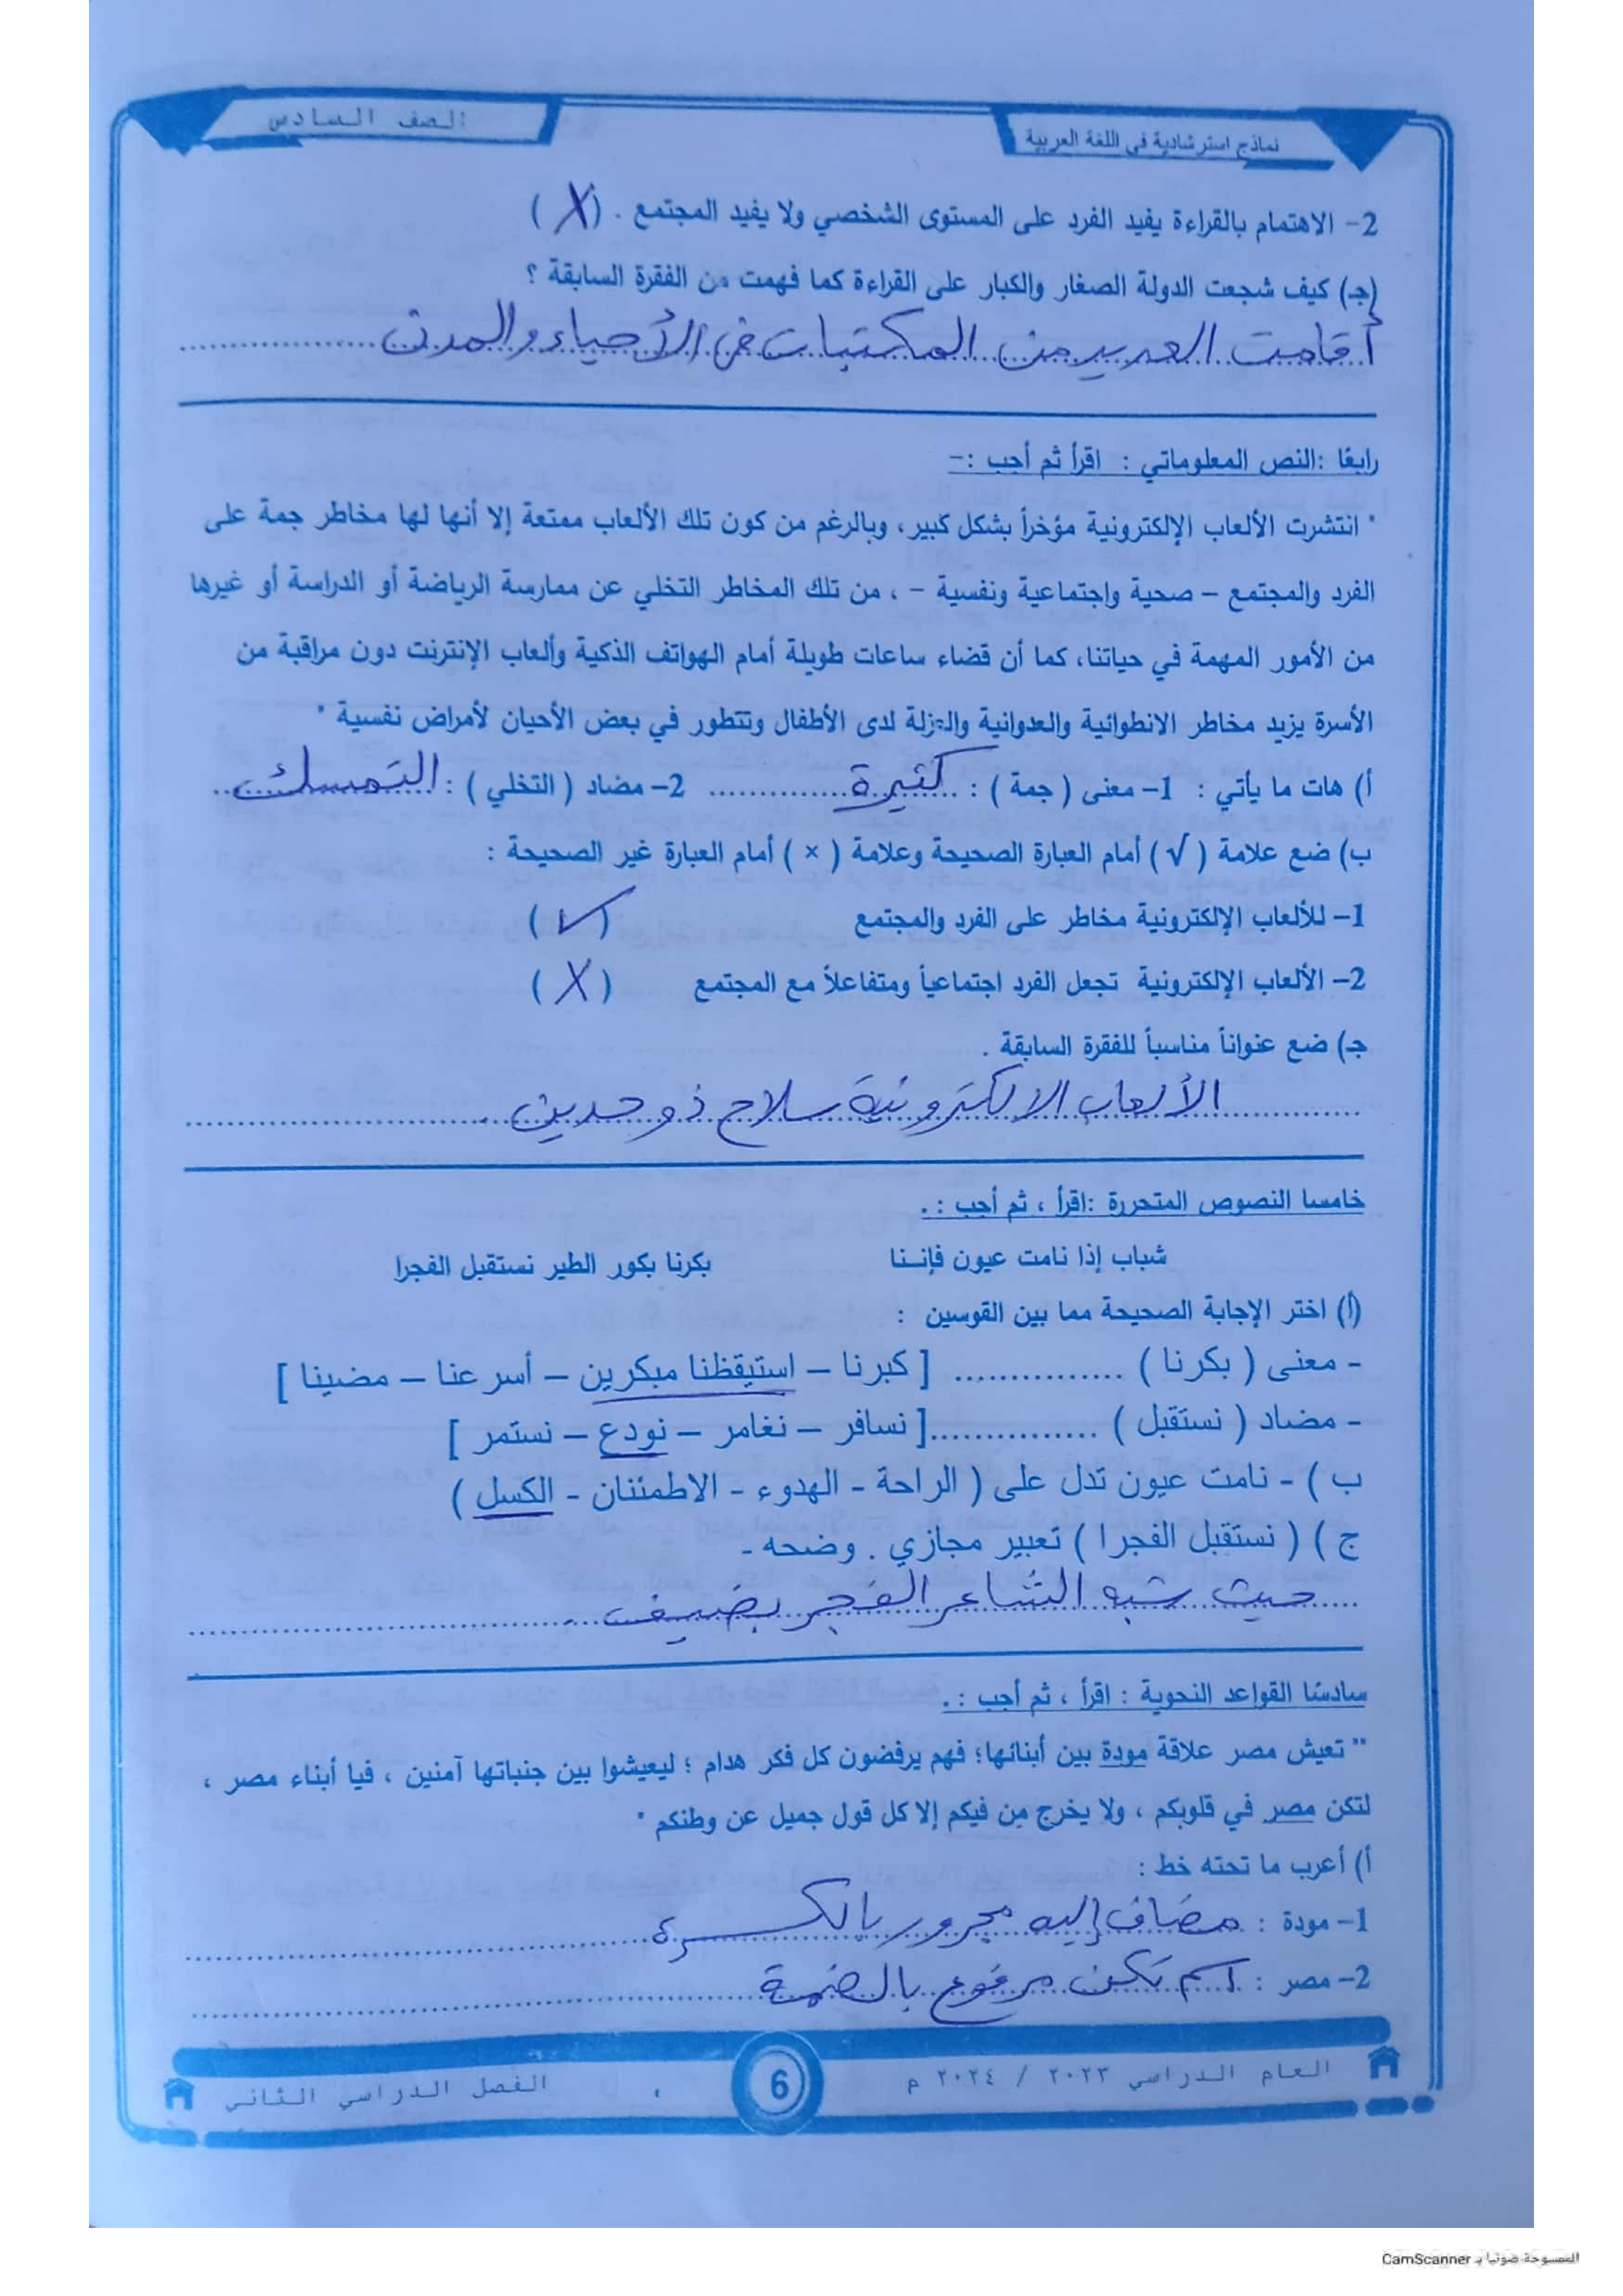 نماذج استرشادية في اللغة العربية
الصف السادس
2- الاهتمام بالقراءة يفيد الفرد على المستوى الشخصي ولا يفيد المجتمع . (X)
(جـ) كيف شجعت الدولة الصغار والكبار على القراءة كما فهمت من الفقرة السابقة ؟
أقامت العديد من المكتبات في الأحياء والمدن
رابعًا :النص المعلوماتي : اقرأ ثم أجب :-
" انتشرت الألعاب الإلكترونية مؤخراً بشكل كبير، وبالرغم من كون تلك الألعاب ممتعة إلا أنها لها مخاطر جمة على
الفرد والمجتمع – صحية واجتماعية ونفسية – ، من تلك المخاطر التخلي عن ممارسة الرياضة أو الدراسة أو غيرها
من الأمور المهمة في حياتنا، كما أن قضاء ساعات طويلة أمام الهواتف الذكية وألعاب الإنترنت دون مراقبة من
الأسرة يزيد مخاطر الانطوائية والعدوانية والعزلة لدى الأطفال وتتطور في بعض الأحيان لأمراض نفسية "
أ) هات ما يأتي : 1- معنى ( جمة ) : كثيرة 2- مضاد ( التخلي ) : التمسك
ب) ضع علامة ( √ ) أمام العبارة الصحيحة وعلامة ( × ) أمام العبارة غير الصحيحة :
1- للألعاب الإلكترونية مخاطر على الفرد والمجتمع (✓)
2- الألعاب الإلكترونية تجعل الفرد اجتماعياً ومتفاعلاً مع المجتمع (X)
جـ) ضع عنواناً مناسباً للفقرة السابقة .
الألعاب الالكترونية سلاح ذو حدين
خامسا النصوص المتحررة :اقرأ ، ثم أجب : .
شباب إذا نامت عيون فإننا بكرنا بكور الطير نستقبل الفجرا
(أ) اختر الإجابة الصحيحة مما بين القوسين :
- معنى ( بكرنا ) ............... [ كبرنا – استيقظنا مبكرين – أسرعنا – مضينا ]
- مضاد ( نستقبل ) ...............[ نسافر – نغامر – نودع – نستمر ]
ب ) - نامت عيون تدل على ( الراحة - الهدوء - الاطمئنان - الكسل )
ج ) ( نستقبل الفجرا ) تعبير مجازي . وضحه -
حيث شبه الشاعر الفجر بضيف
سادسًا القواعد النحوية : اقرأ ، ثم أجب : .
" تعيش مصر علاقة مودة بين أبنائها؛ فهم يرفضون كل فكر هدام ؛ ليعيشوا بين جنباتها آمنين ، فيا أبناء مصر ،
لتكن مصر في قلوبكم ، ولا يخرج مِن فيكم إلا كل قول جميل عن وطنكم "
أ) أعرب ما تحته خط :
1- مودة : مضاف إليه مجرور بالكسرة
2- مصر : اسم تكن مرفوع بالضمة
العام الدراسي ٢٠٢٣ / ٢٠٢٤ م
6
الفصل الدراسي الثاني
الممسوحة ضوئيا بـ CamScanner